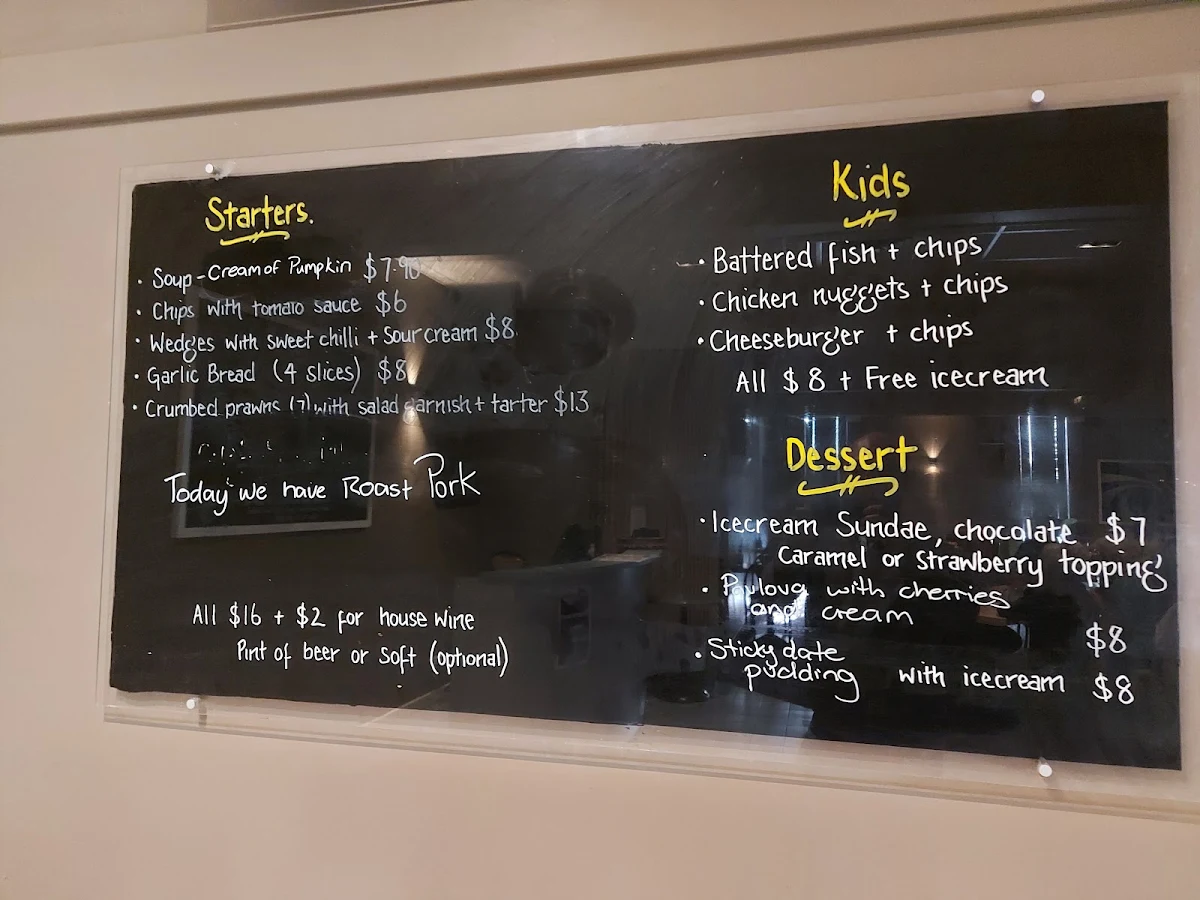 Starters.
• Soup - Cream of Pumpkin $7.90
• Chips with tomato sauce $6
• Wedges with sweet chilli + Sour cream $8
• Garlic Bread (4 slices) $8
• Crumbed prawns (7) with salad garnish + tarter $13
Today we have Roast Pork
All $16 + $2 for house wine
Pint of beer or soft (optional)
Kids
• Battered fish + chips
• Chicken nuggets + chips
• Cheeseburger + chips
All $8 + Free icecream
Dessert
• Icecream Sundae, chocolate $7
Caramel or strawberry topping
• Pavlova with cherries
and cream
$8
• Sticky date
pudding with icecream $8